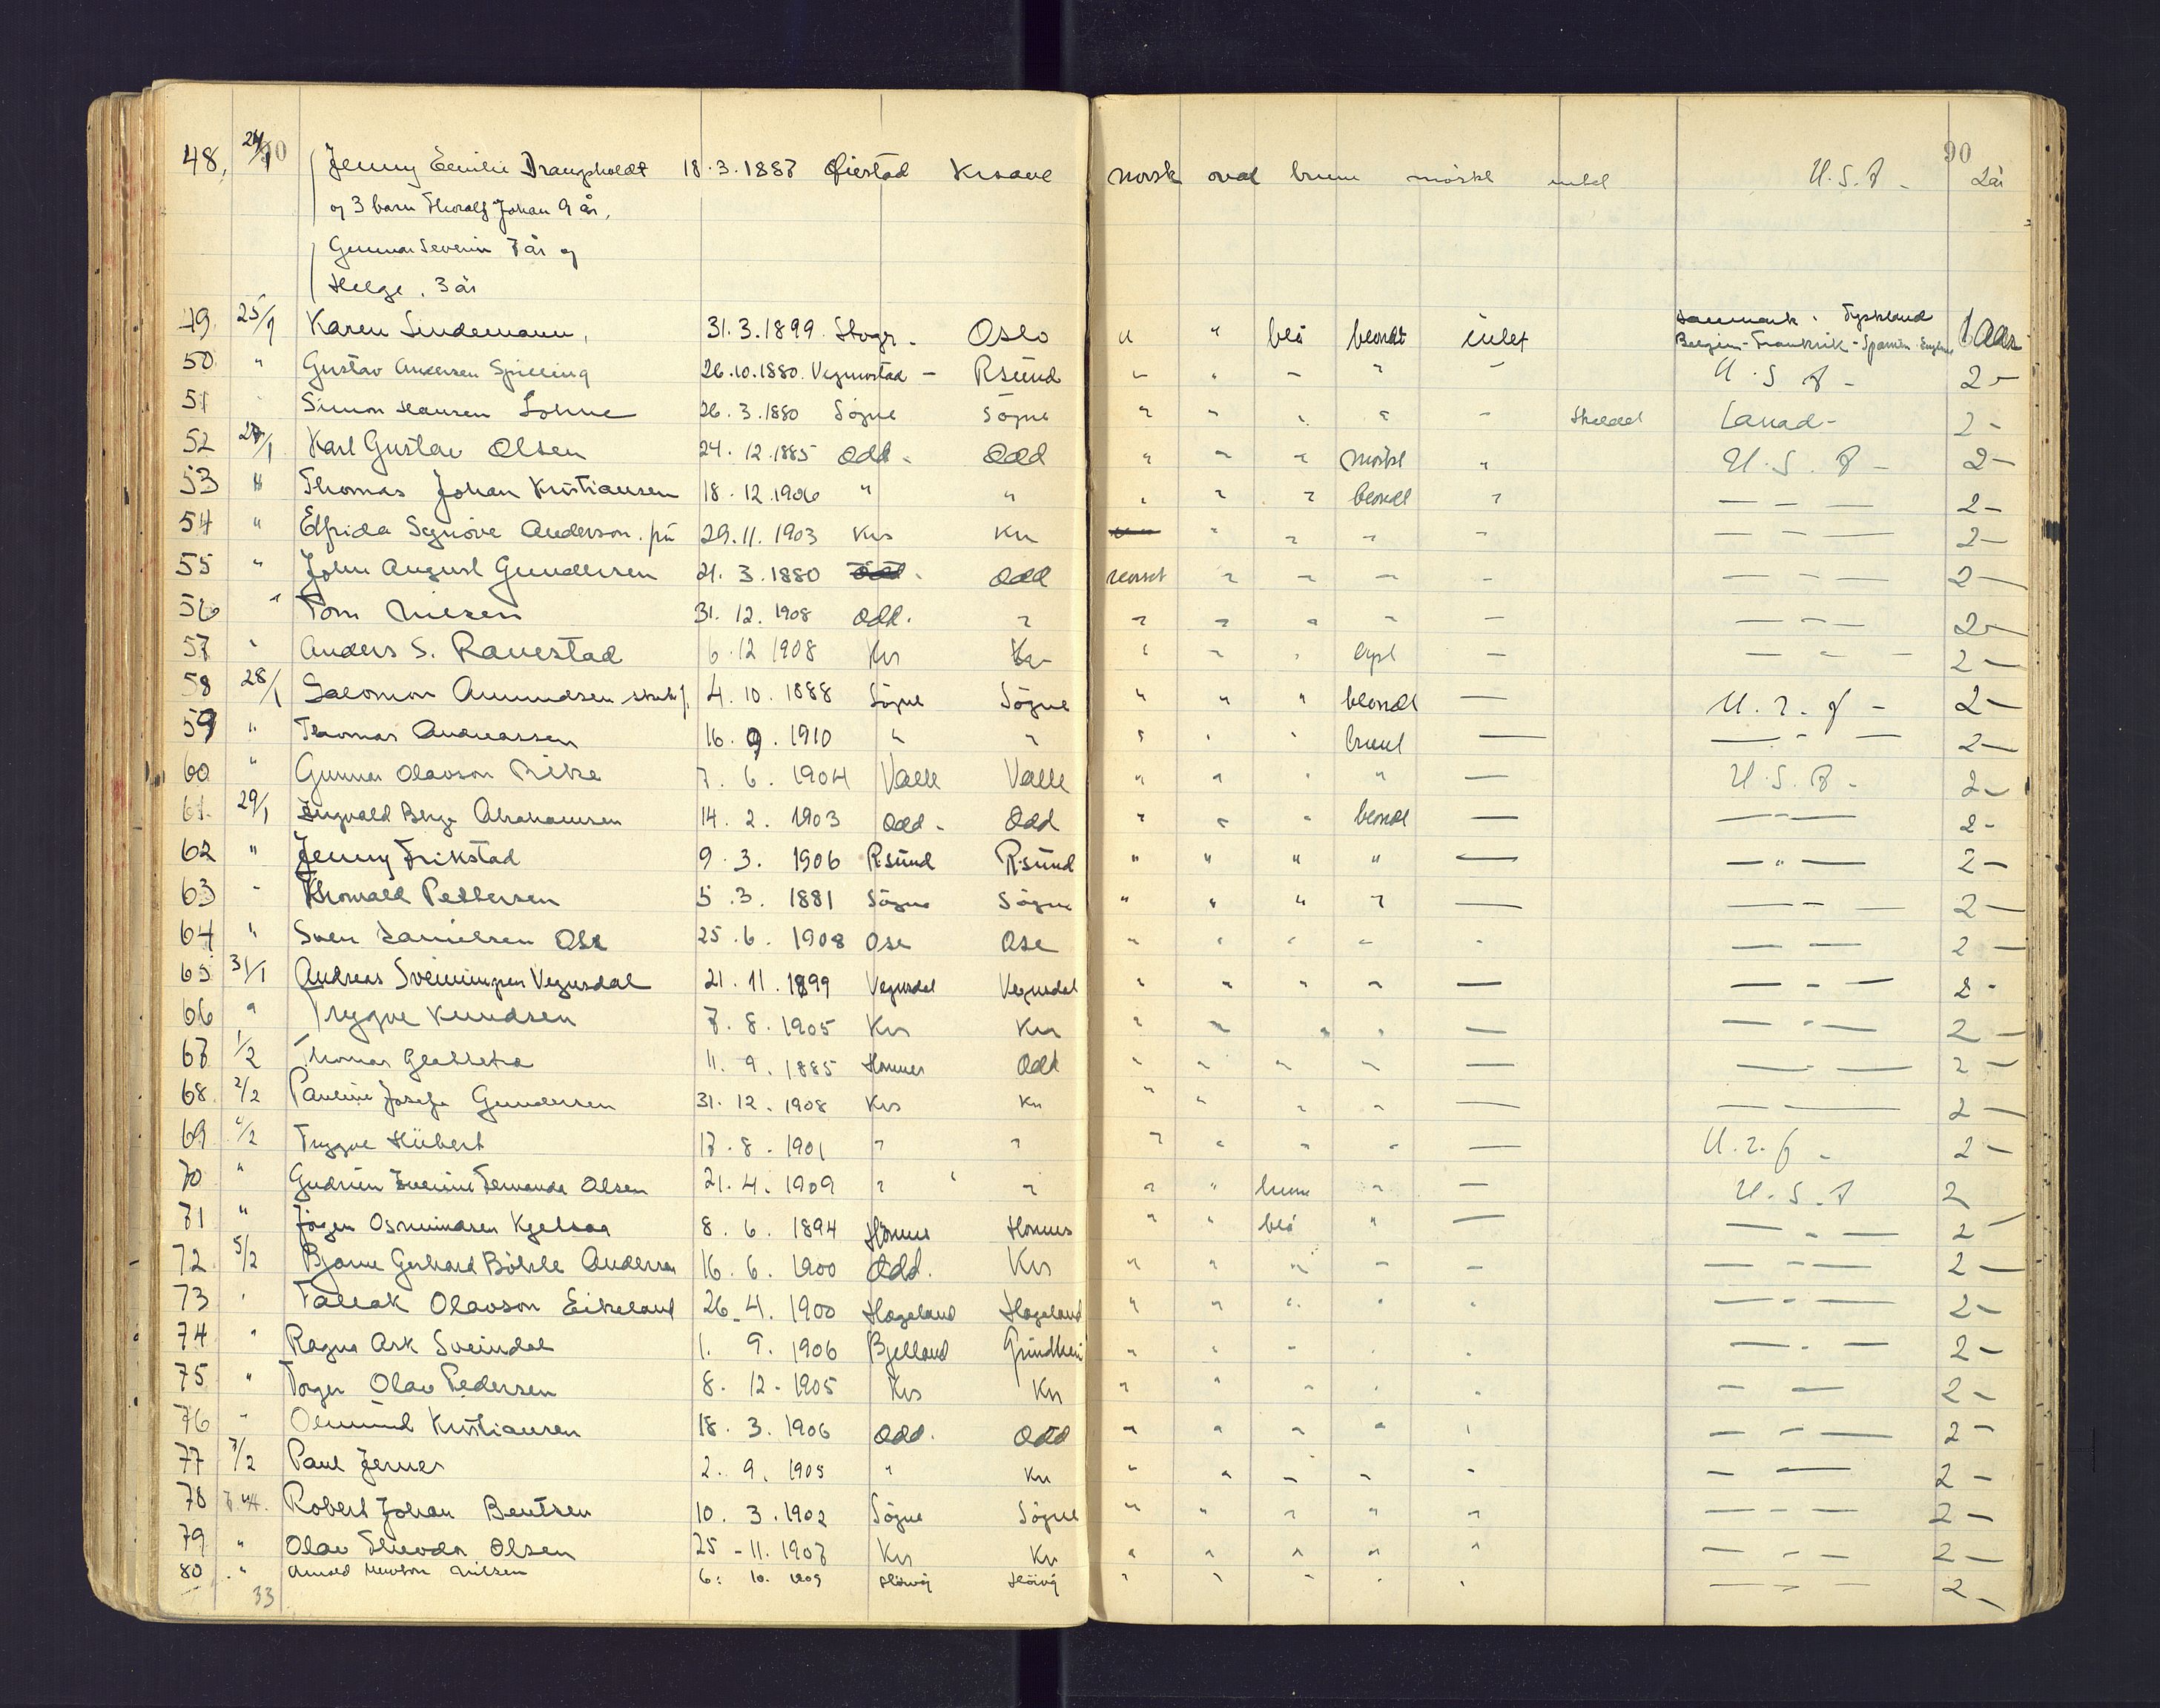 90
48. 24/1 Jenny Emilie Drangsholdt 18.3.1887 Øiestad norsk oval brune mørkt U.S.A - 2 år
og 3 barn Thoralf Johan 9 år,
Gunnar Severin 7 år og
Helge. 3 år
49. 25/1 Karen Lindemann, 31.3.1899. Oslo " " blå blondt intet Danmark. Tyskland
Belgien - Frankrik - Spanien England
50 " Gustav Andersen Spilling 26.10.1880. Vegusstad - Rsund " " " U.S.A - 2 -
51 Simon Hansen Lohne 26.3.1880 Søgne Søgne " " " " " Canad - 2 -
52 27/1 Karl Gustav Olsen 24.12.1885 Odd. Odd " " " mørkt " U.S.A - 2 -
53 " Thomas Johan Kristiansen 18.12.1906 " " " " " blondt " — - — 2 -
54 " Elfrida Synøve Anderson. frü 29.11.1903 Krs Krs " " " " — - — 2 -
55 " John August Gundersen 21.3.1880 Odd norsk " " " " — - — 2 -
56 " Tom Nilsen 31.12.1908 Odd. " " " " " — — - — 2 -
57 " Anders S. Ravnestad 6.12 1908 Krs Kr " " " lyst — — - — 2 -
58 28/1 Salomon Amundsen 4.10.1888 Søgne Søgne " " " blondt — U.S.A - 2 -
59 " Thomas Andreassen 16.9.1910 " " " " " brunt — — - — 2 -
60 " Gunnar Olavson Rike 7.6.1904 Valle Valle " " " " — U.S.A - 2 -
61 29/1 Sigvald Berge Abrahamsen 14.2.1903 Odd. Odd " " " blondt — — - — 2 -
62 " Jenny Frikstad 9.3.1906 R.sund R.sund " " " " — — " — 2 -
63 " Thorvald Pettersen 5.3.1881 Søgne Søgne " " " " — — - — 2 -
64 " Sven Danielsen Ose 25.6.1908 Ose Ose " " " " " — — 2 -
65 31/1 Andreas Sveinungsen Vegusdal 21.11.1899 Vegusdal Vegusdal " " " " — — - — 2 -
66 " Trygve Knudsen 7.8.1905 Krs Krs " " " " — — - — 2 -
67 1/2 Thomas 11.9.1885 Hornnes Odd " " " " — — - — 2 -
68 2/2 Pauline Josefa Gundersen 31.12.1908 Krs Krs " " " " — — - — 2 -
69 4/2 Trygve Hübert 17.8.1901 " " " " " " — U.S.A - 2 -
70 " Gudrun Fernanda Olsen 21.4.1909 " " " " brune " — U.S.A 2
71 " Jørgen Osmundsen Kjetsaa 8.6.1894 Hornnes Hornnes " " blå " — — - — 2 -
72 5/2 Bjarne Gerhard Anderson 16.6.1900 Odd. Krs " " " " — — - — 2 -
73 " Tallak Olavson Eikeland 26.4.1900 Hægeland Hægeland " " " " " — - — 2 -
74 " Ragna Ark Sveindal 1.9.1906 Bjelland Grindheim " " " " " — - — 2 -
75 " Torger Olav Pedersen 8.12-1905 Krs Krs " " " " " — — 2 -
76 " Osmund Kristiansen 18.3.1906 Odd. Odd " " " " " — - — 2 -
77 7/2 Paul Jerner 2.9.1905 " Krs " " " " " — — 2 -
78 Robert Johan Bentsen 10.3.1902 Søgne Søgne " " " " " — - — 2 -
79 " Olav Olsen 25-11.1907 Krs Krs " " " " " — - — 2 -
80 " Arnold Nilsen 6.10.1909 Høivåg Høivåg " " " " " — - — 2 -
33